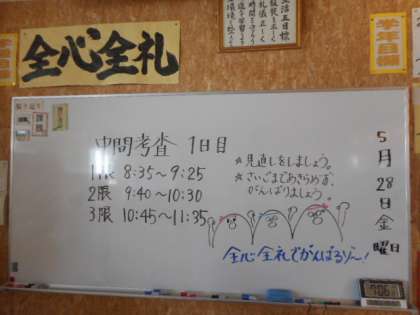 全心全礼
学年目標
中間考査 1日目
1限 8:35～9:25
2限 9:40～10:30
3限 10:45～11:35
☆見直しをしましょう。
☆さいごまであきらめず、
がんばりましょう。
5月28日金曜日
全心全礼でがんばるゾ～！
7:06